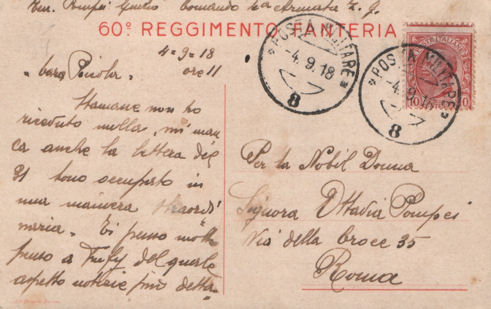 Ten. Pompei Giulio Comando 2a Armata Z. G.
60º REGGIMENTO FANTERIA
4-9-18
ore 11
Cara
Stamane non ho
ricevuto nulla, mi man
ca anche la lettera del
31 sono occupato in
una maniera straordi
naria. Ti penso molto
penso a Fufy del quale
aspetto notizie più detta
POSTA MILITARE
-4.9.18
8
POSTA MILITARE
-4.9.18
8
Per la Nobil Donna
Signora Ottavia Pompei
Via della Croce 35
Roma